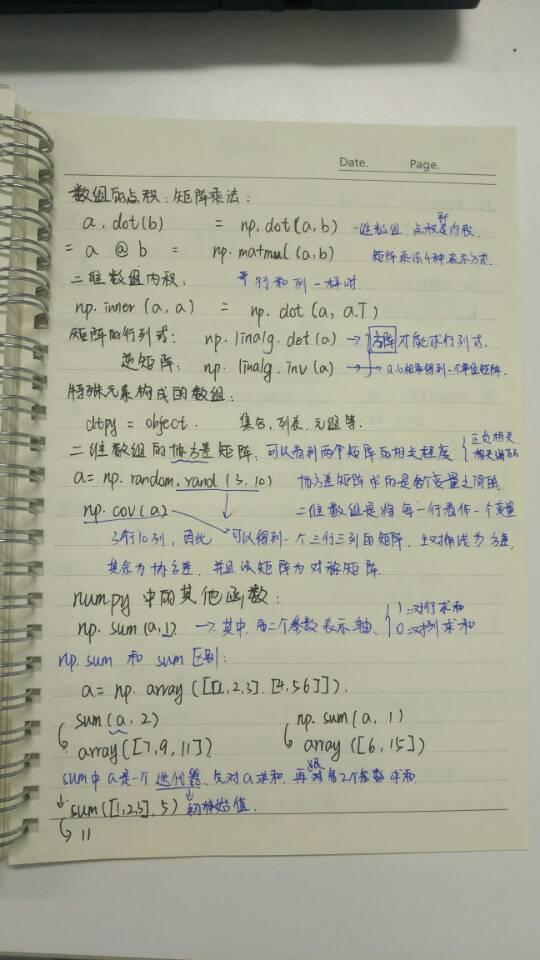 Date. Page.
数组的点积：矩阵乘法：
a.dot(b) = np.dot(a,b) 一维数组，点积即内积.
= a @ b = np.matmul(a,b) 矩阵乘法4种表示方式.
二维数组内积： 行和列一样时.
np.inner(a,a) = np.dot(a, a.T)
矩阵的行列式： np.linalg.det(a) → 方阵才能求行列式.
逆矩阵： np.linalg.inv(a) → a.b相乘得到一个单位矩阵.
特殊元素构成的数组：
dtpy = object. 集合,列表,元组等.
二维数组的协方差矩阵，可以看到两个矩阵的相关程度 { 正负相关
a = np.random.rand(3,10) 协方差矩阵求的是各个变量之间的
np.cov(a) 二维数组是将每一行看作一个变量
3行10列，因此可以得到一个三行三列的矩阵，主对角线为方差,
其余为协方差，并且该矩阵为对称矩阵.
numpy中的其他函数：
np.sum(a,1) → 其中第二个参数表示轴、{ 1:对行求和
0:对列求和
np.sum 和 sum区别：
a = np.array([[1,2,3],[4,5,6]]).
sum(a,2) np.sum(a,1)
array([7,9,11]) array([6,15])
sum中a是一个迭代器，先对a求和，再跟第2个参数求和
sum([1,2,3],5) 初始值.
11